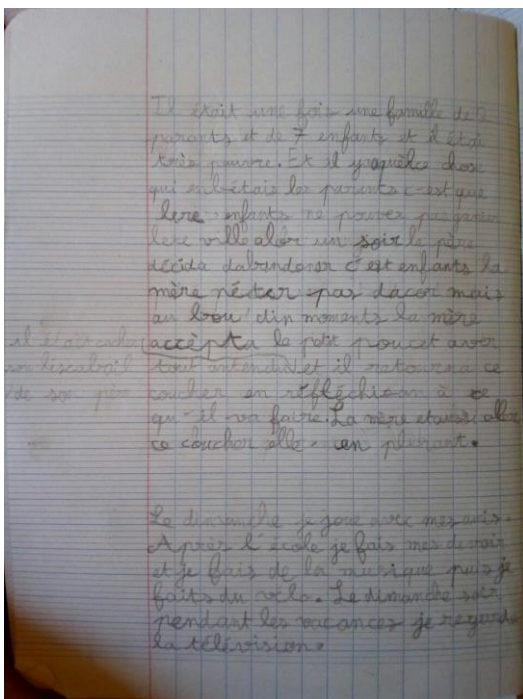 Il était une fois une famille de 2
parants et de 7 enfants et il étai
très pauvre. Et il y aquèlce chose
qui enbétais les parents c'est que
lere enfants ne pouver pas
lere alor un soir le père
décida dabandoner c'est enfants la
mère néter pas dacor mais
au bou din moments la mère
accèpta le petit poucet aver
il était cacher
sou l'escabail
de son père
tout entendu et il retourna ce
coucher en réfléchisan à ce
qu'il va faire. La mère aler
ce coucher elle en plerant.
Le dimanche je joue avec mes amis.
Après l'école je fais mes devoir
et je fais de la musique puis je
faits du vélo. Le dimanche soir
pendant les vacances je regarde
la télévision.